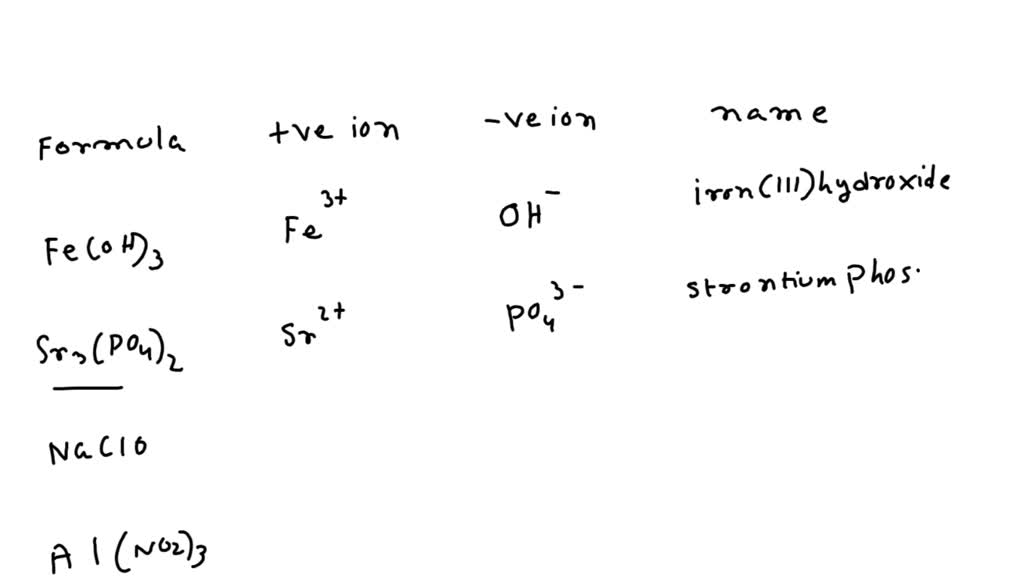 Formula +ve ion -ve ion name
Fe(OH)₃ Fe³⁺ OH⁻ iron(III)hydroxide
Sr₃(PO₄)₂ Sr²⁺ PO₄³⁻ strontium phos.
NaClO
Al(NO₂)₃